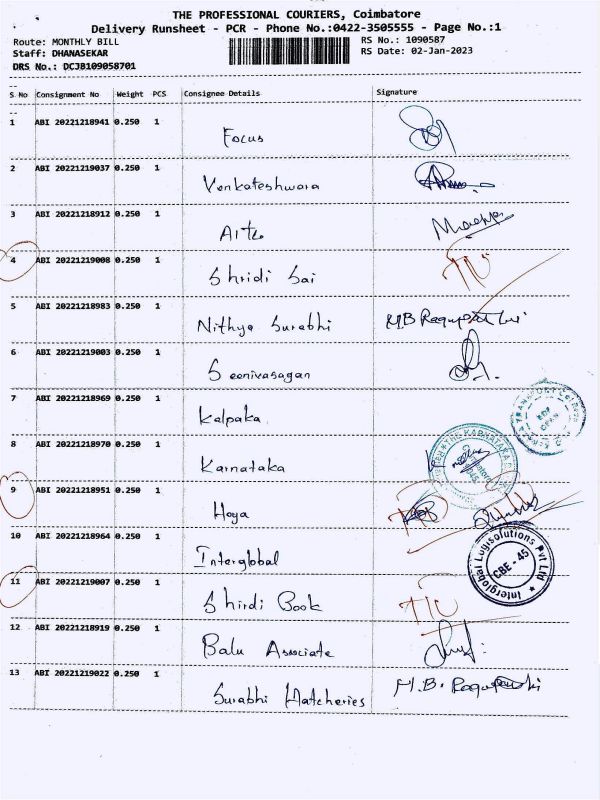 THE PROFESSIONAL COURIERS, Coimbatore
Delivery Runsheet - PCR - Phone No.:0422-3505555 - Page No.:1
Route: MONTHLY BILL RS No.: 1090587
Staff: DHANASEKAR RS Date: 02-Jan-2023
DRS No.: DCJB109058701
S No Consignment No Weight PCS Consignee Details Signature
1 ABI 20221218941 0.250 1
Focus
2 ABI 20221219037 0.250 1
Venkateshwara
3 ABI 20221218912 0.250 1
4 ABI 20221219008 0.250 1
Shridi Sai
5 ABI 20221218983 0.250 1
Nithya Surabhi
6 ABI 20221219003 0.250 1
Seenivasagan
7 ABI 20221218969 0.250 1
Kalpaka
8 ABI 20221218970 0.250 1
Karnataka
THE KARNATAKA
9 ABI 20221218951 0.250 1
Hoya
10 ABI 20221218964 0.250 1
Interglobal
Interglobal Logisolutions Pvt Ltd
CBE - 45
11 ABI 20221219007 0.250 1
Shirdi Book
12 ABI 20221218919 0.250 1
Balu Associate
13 ABI 20221219022 0.250 1
Surabhi Hatcheries